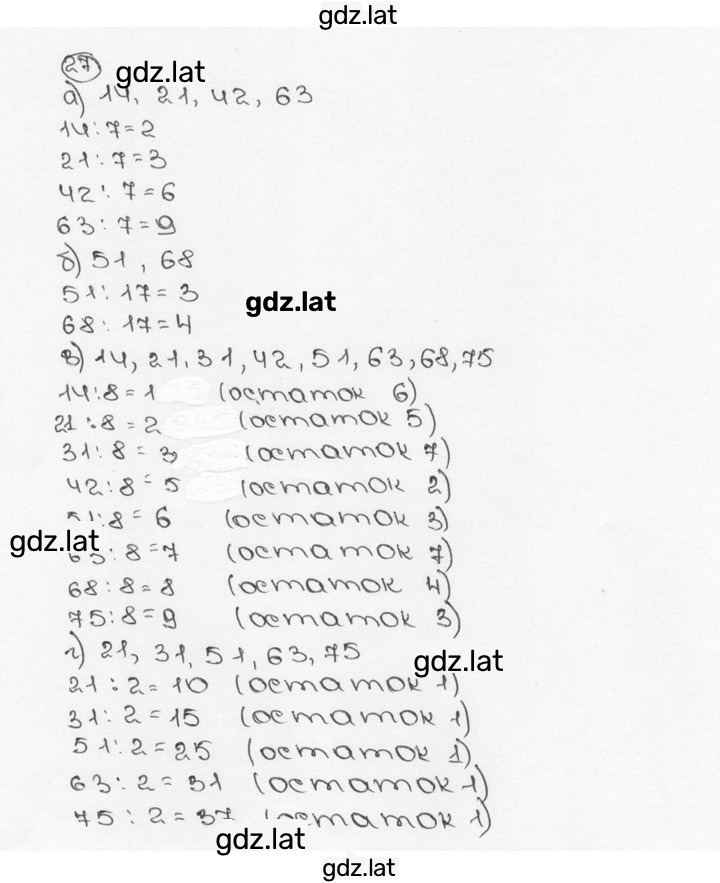 gdz.lat
27 gdz.lat
а) 14, 21, 42, 63
14:7=2
21:7=3
42:7=6
63:7=9
б) 51, 68
51:17=3
gdz.lat
68:17=4
в) 14, 21, 31, 42, 51, 63, 68, 75
14:8=1 (остаток 6)
21:8=2 (остаток 5)
31:8=3 (остаток 7)
42:8=5 (остаток 2)
51:8=6 (остаток 3)
gdz.lat
63:8=7 (остаток 7)
68:8=8 (остаток 4)
75:8=9 (остаток 3)
г) 21, 31, 51, 63, 75
gdz.lat
21:2=10 (остаток 1)
31:2=15 (остаток 1)
51:2=25 (остаток 1)
63:2=31 (остаток 1)
75:2=37 (остаток 1)
gdz.lat
gdz.lat